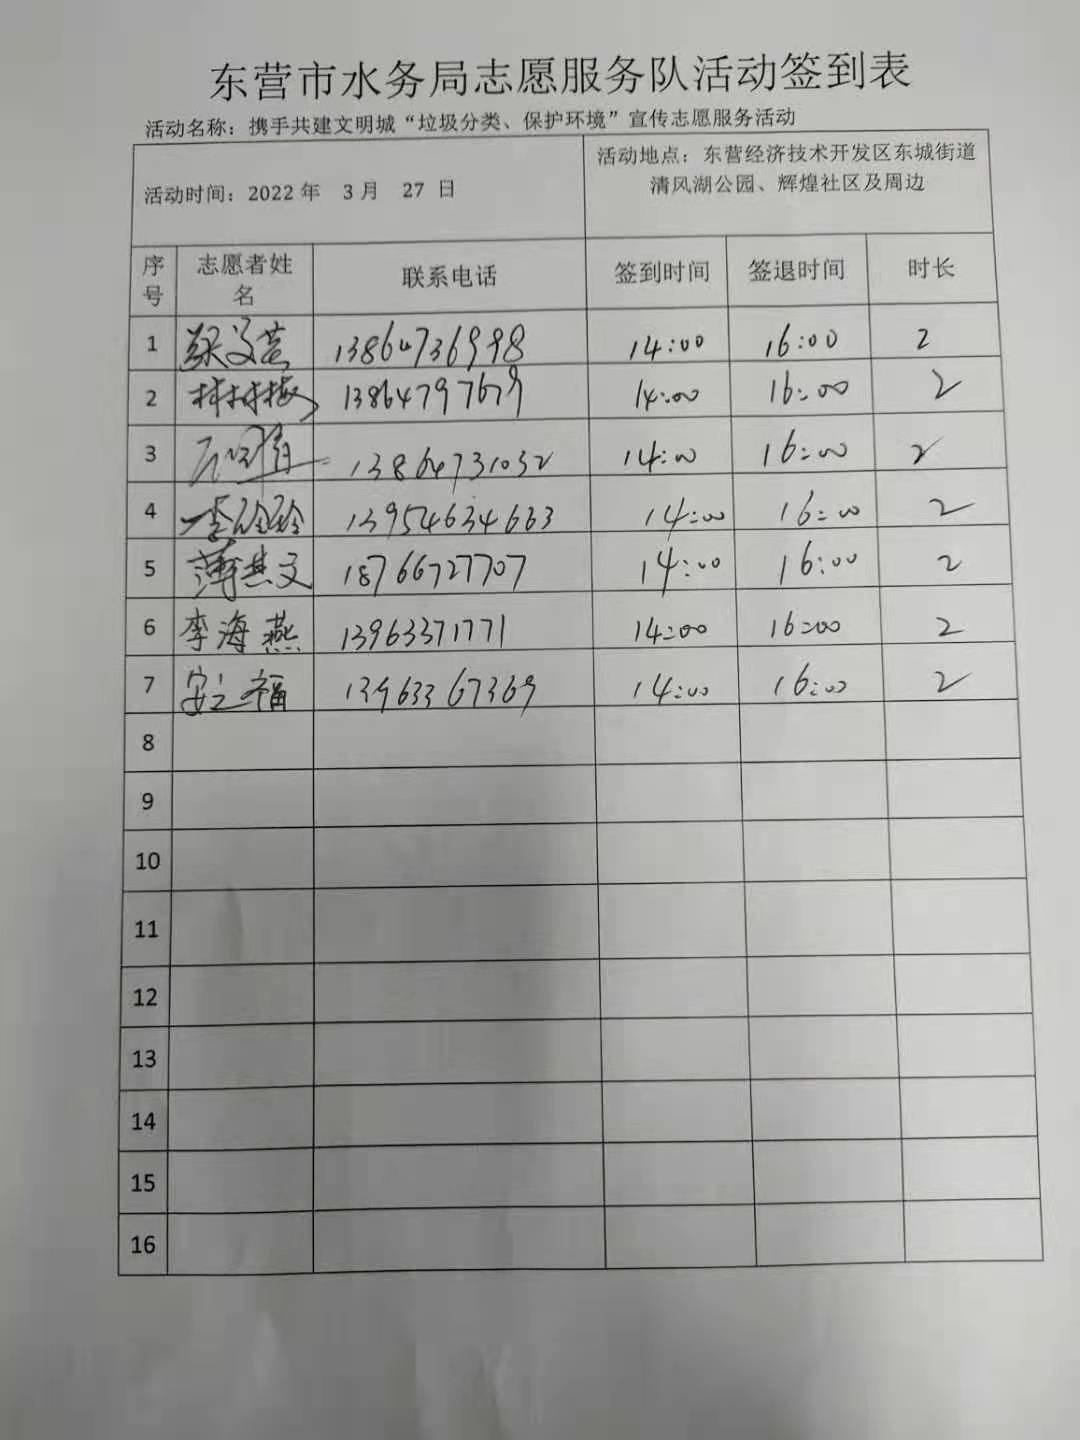 东营市水务局志愿服务队活动签到表
活动名称：携手共建文明城“垃圾分类、保护环境”宣传志愿服务活动
活动时间：2022年 3月 27日
活动地点：东营经济技术开发区东城街道
清风湖公园、辉煌社区及周边
序号 志愿者姓名 联系电话 签到时间 签退时间 时长
1 13864736998 14:00 16:00 2
2 林树梅 13864797679 14:00 16:00 2
3 13864731032 14:00 16:00 2
4 李玲玲 13954634663 14:00 16:00 2
5 薄其文 18766727707 14:00 16:00 2
6 李海燕 13963371771 14:00 16:00 2
7 安立福 13963367369 14:00 16:00 2
8
9
10
11
12
13
14
15
16